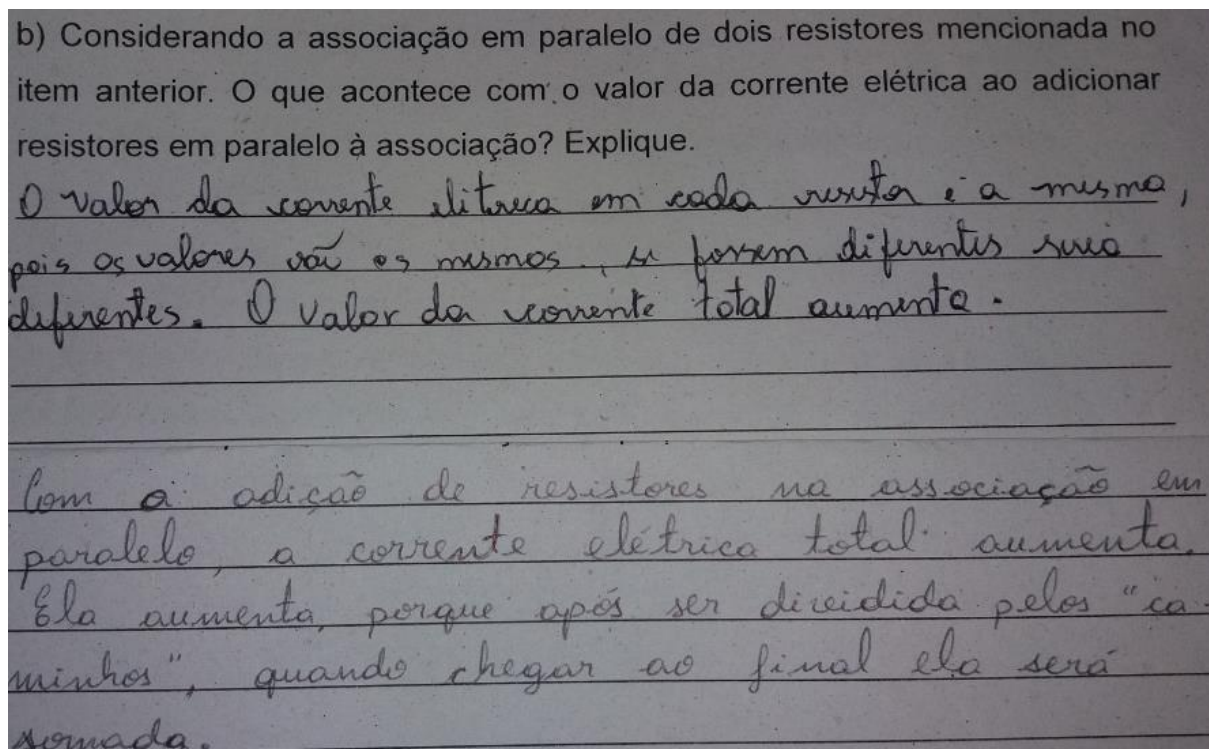 b) Considerando a associação em paralelo de dois resistores mencionada no
item anterior. O que acontece com o valor da corrente elétrica ao adicionar
resistores em paralelo à associação? Explique.
O valor da corrente elitrica em cada resistor é a mesma,
pois os valores são os mesmos, se fossem diferentes seria
diferentes. O valor da corrente total aumenta.
Com a adição de resistores na associação em
paralelo, a corrente elétrica total aumenta.
Ela aumenta, porque após ser dividida pelos "ca-
minhos", quando chegar ao final ela será
somada.